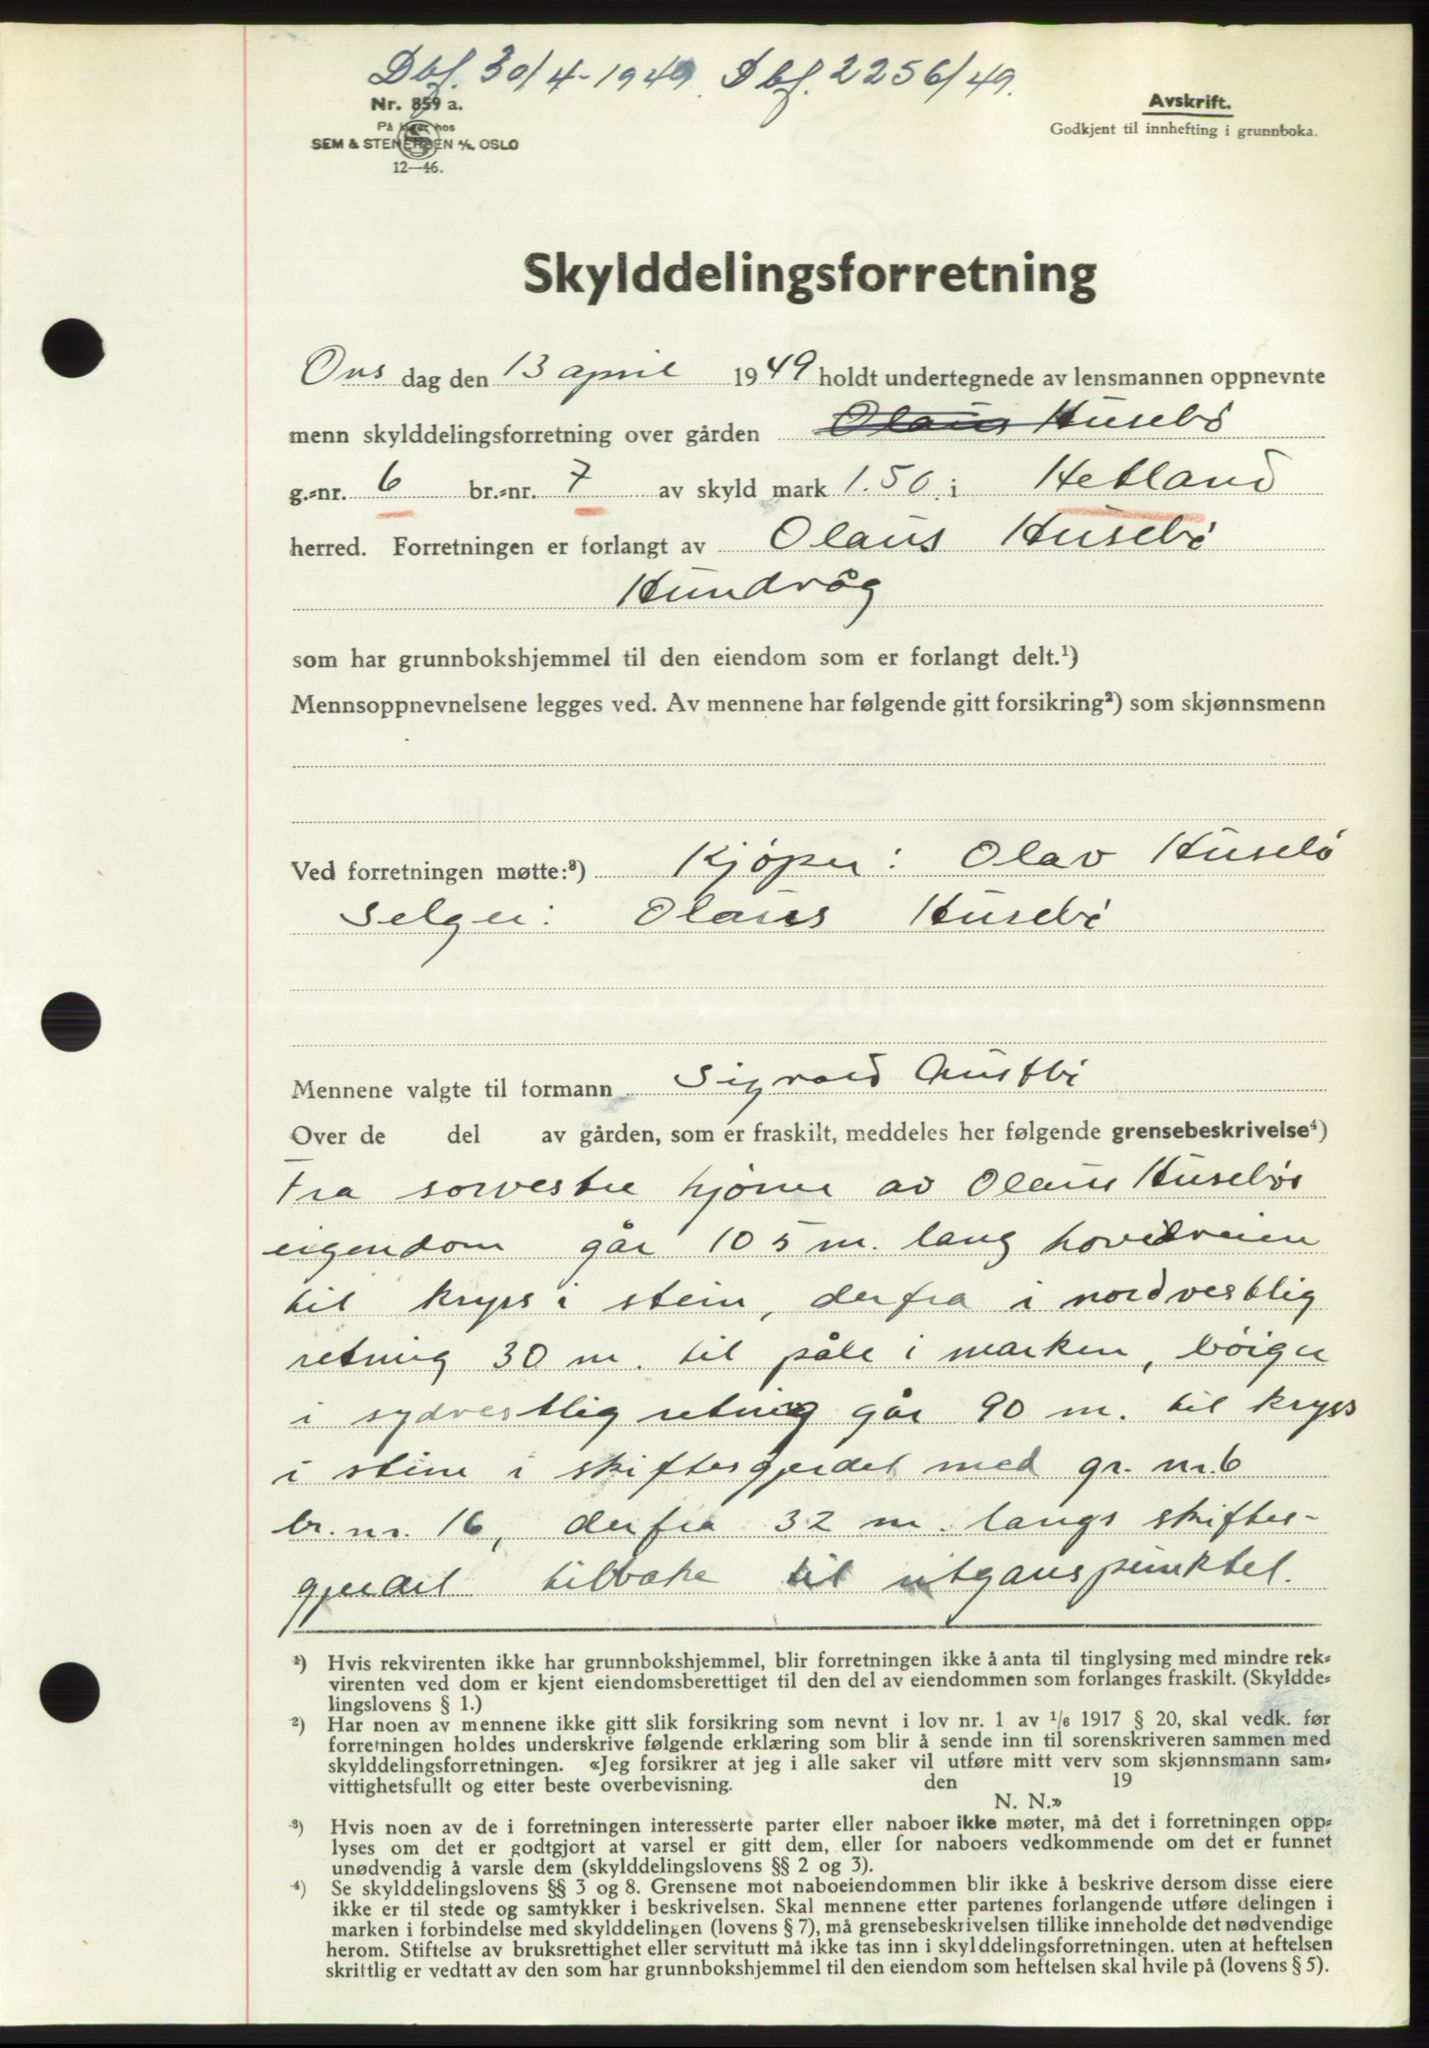 Dbf. 30/4-1949. Dbf. 2256/49.
Nr. 859 a.
På lager hos
SEM & STENERSEN A/S, OSLO
12—46.
Avskrift.
Godkjent til innhefting i grunnboka.
Skylddelingsforretning
Ons dag den 13 april 1949 holdt undertegnede av lensmannen oppnevnte
menn skylddelingsforretning over gården Olaus Husebö
g.=nr. 6 br.=nr. 7 av skyld mark 1.50. i Hetland
herred. Forretningen er forlangt av Olaus Husebö
Hundvåg
som har grunnbokshjemmel til den eiendom som er forlangt delt.¹)
Mennsoppnevnelsene legges ved. Av mennene har følgende gitt forsikring²) som skjønnsmenn
Ved forretningen møtte:³) Kjöper: Olav Husebö
Selger: Olaus Husebö
Mennene valgte til formann Sigvald Austbö
Over de del av gården, som er fraskilt, meddeles her følgende grensebeskrivelse⁴)
Fra sorvestre hjörne av Olaus Husebös
eigendom går 105 m. lang hovedveien
til kryss i stein, derfra i nordvestlig
retning 30 m. til påle i marken, böiger
i sydvestlig retning går 90 m. til kryss
i stine i skiftesgjerdet med gr. nr. 6
br. nr. 16, derfra 32 m. langs skiftes-
gjerdet tilbake til utganspunktet.
¹) Hvis rekvirenten ikke har grunnbokshjemmel, blir forretningen ikke å anta til tinglysing med mindre rek=
virenten ved dom er kjent eiendomsberettiget til den del av eiendommen som forlanges fraskilt. (Skyldde=
lingslovens § 1.)
²) Har noen av mennene ikke gitt slik forsikring som nevnt i lov nr. 1 av ¹/6 1917 § 20, skal vedk. før
forretningen holdes underskrive følgende erklæring som blir å sende inn til sorenskriveren sammen med
skylddelingsforretningen. «Jeg forsikrer at jeg i alle saker vil utføre mitt verv som skjønnsmann sam=
vittighetsfullt og etter beste overbevisning. den 19
N. N.»
³) Hvis noen av de i forretningen interesserte parter eller naboer ikke møter, må det i forretningen opp=
lyses om det er godtgjort at varsel er gitt dem, eller for naboers vedkommende om det er funnet
unødvendig å varsle dem (skylddelingslovens §§ 2 og 3).
⁴) Se skylddelingslovens §§ 3 og 8. Grensene mot naboeiendommen blir ikke å beskrive dersom disse eiere
ikke er til stede og samtykker i beskrivelsen. Skal mennene etter partenes forlangende utføre delingen i
marken i forbindelse med skylddelingen (lovens § 7), må grensebeskrivelsen tillike inneholde det nødvendige
herom. Stiftelse av bruksrettighet eller servitutt må ikke tas inn i skylddelingsforretningen. uten at heftelsen
skriftlig er vedtatt av den som har grunnbokshjemmel til den eiendom som heftelsen skal hvile på (lovens § 5).